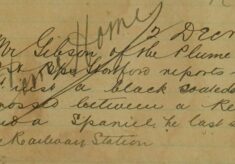 Come Home
2 Dec
Mr Gibson, of the Plume
Stortford reports
a black
crossed between a Re
and a Spaniel, he last s
Railway Station